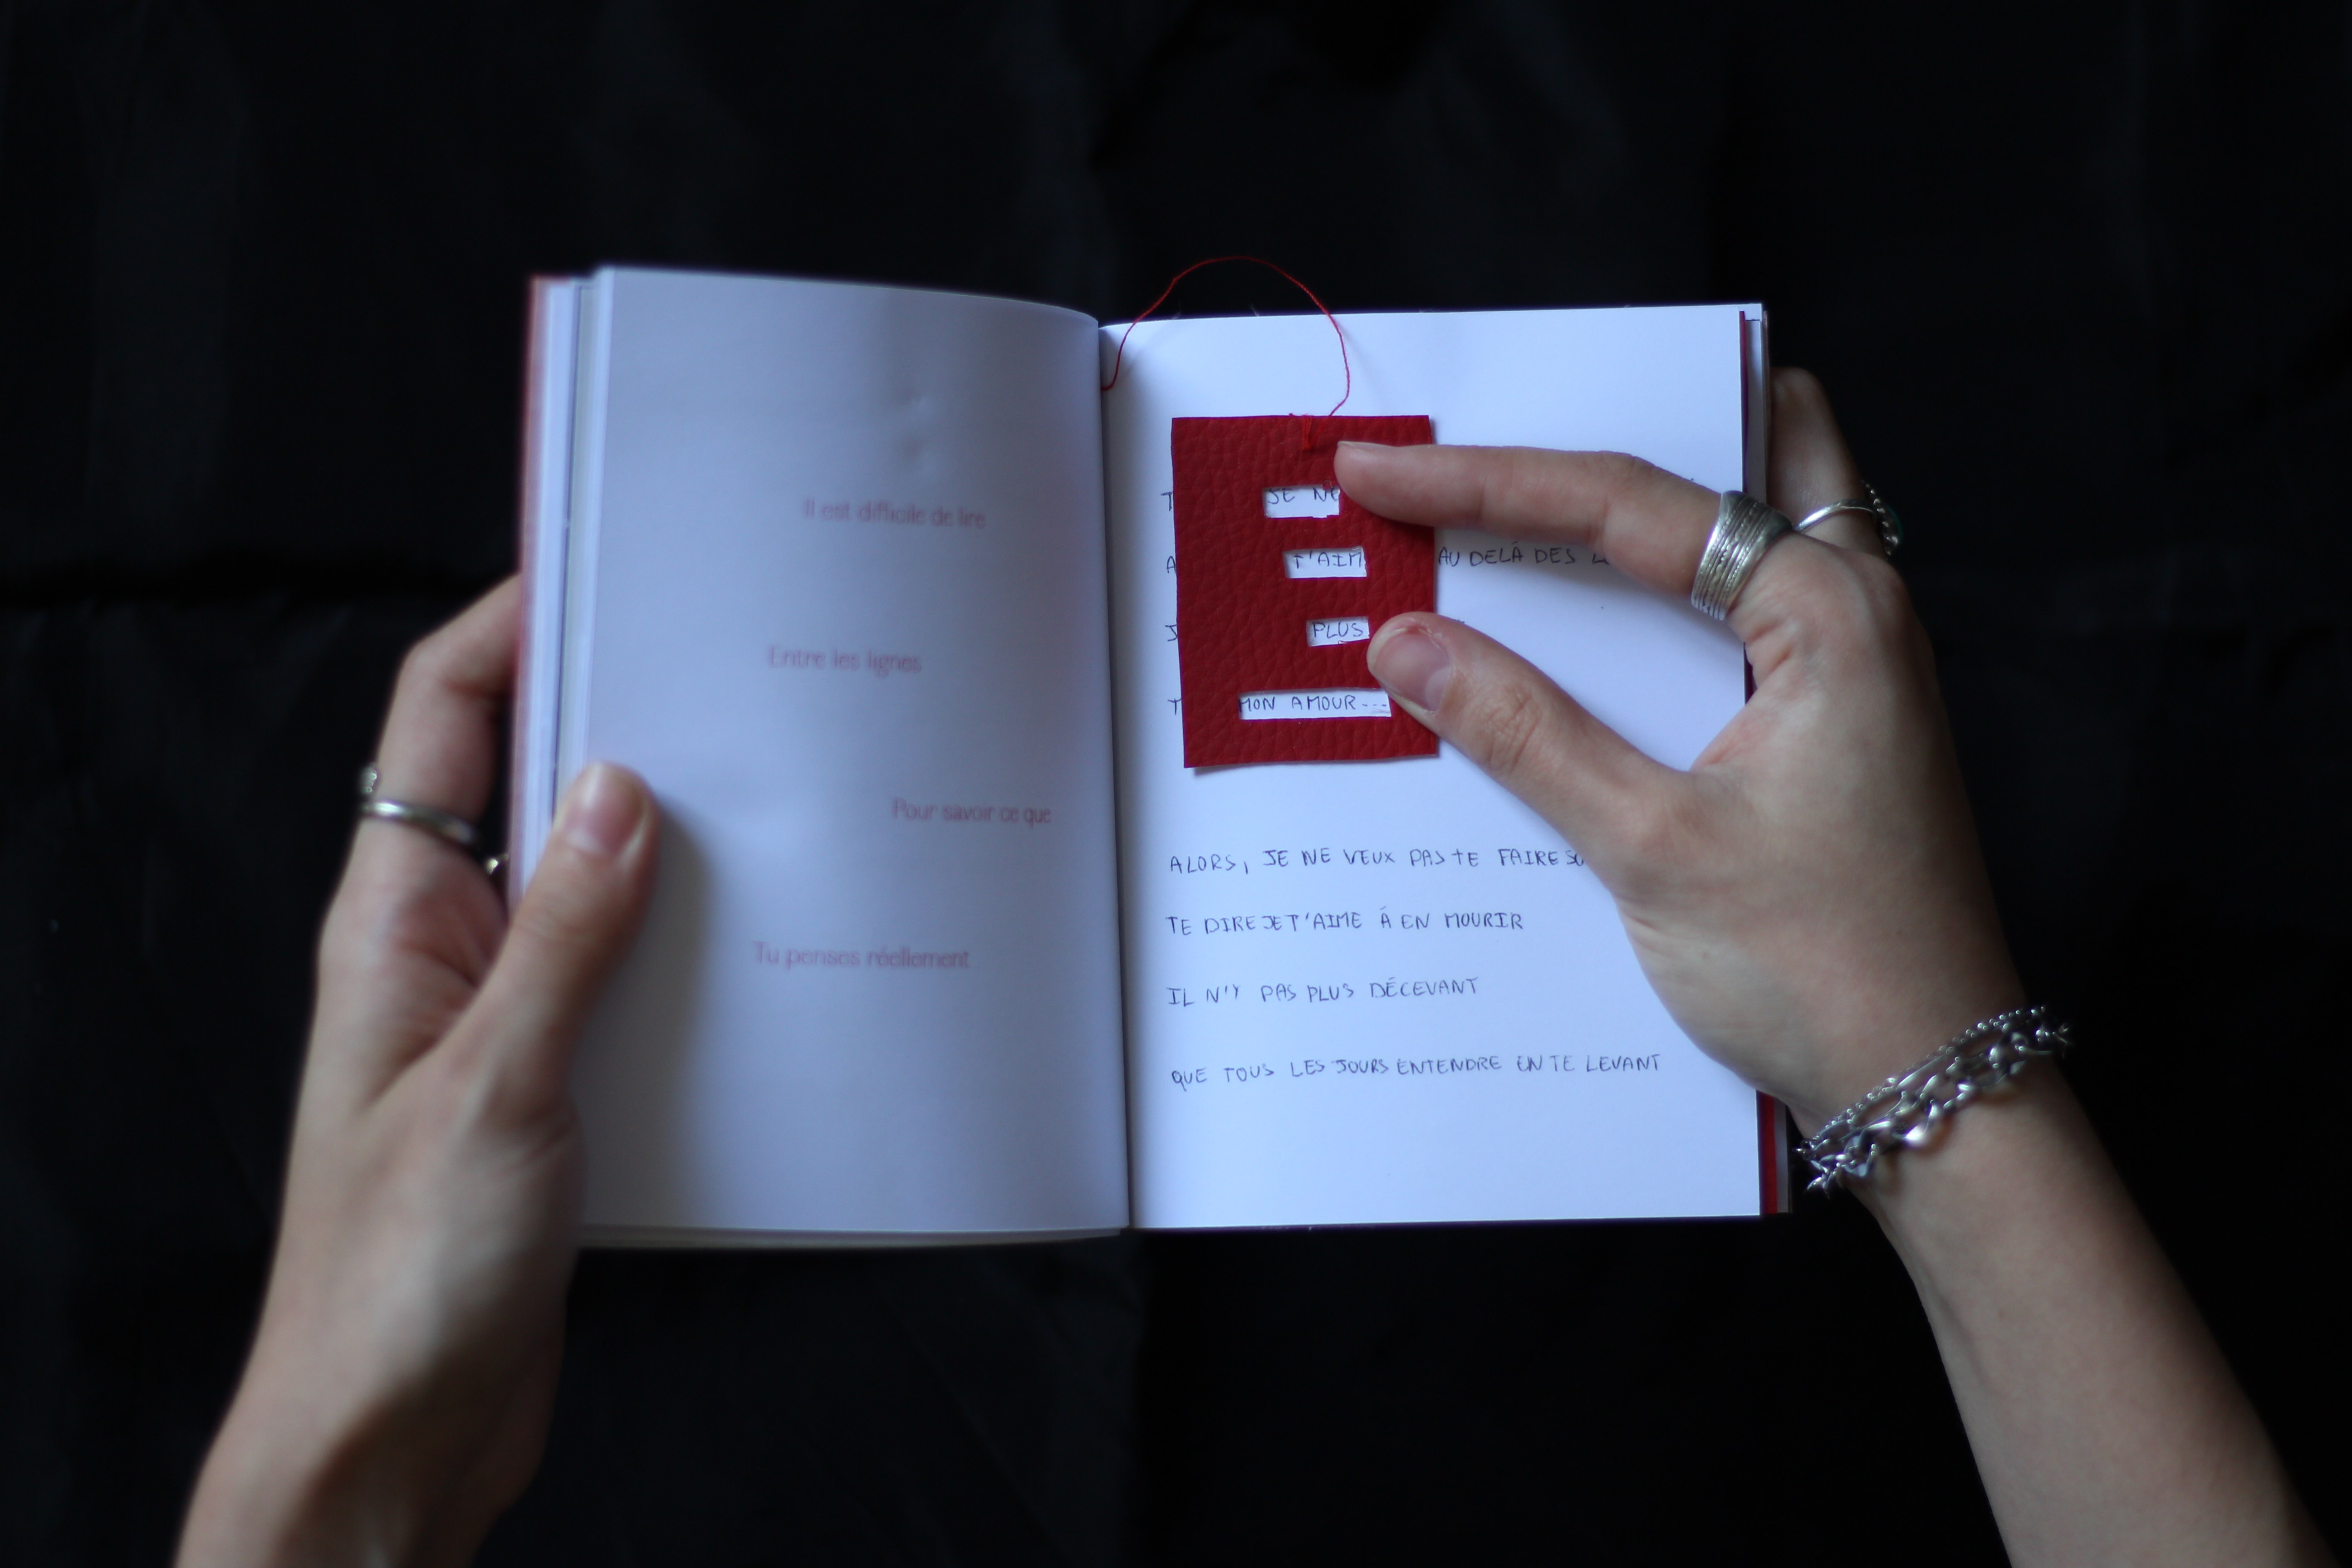 Il est difficile de lire
Entre les lignes
Pour savoir ce que
Tu penses réellement
JE NE
T'AIM
AU DELÀ DES
PLUS
MON AMOUR...
ALORS, JE NE VEUX PAS TE FAIRE
TE DIRE JE T'AIME À EN MOURIR
IL N'Y PAS PLUS DÉCEVANT
QUE TOUS LES JOURS ENTENDRE EN TE LEVANT